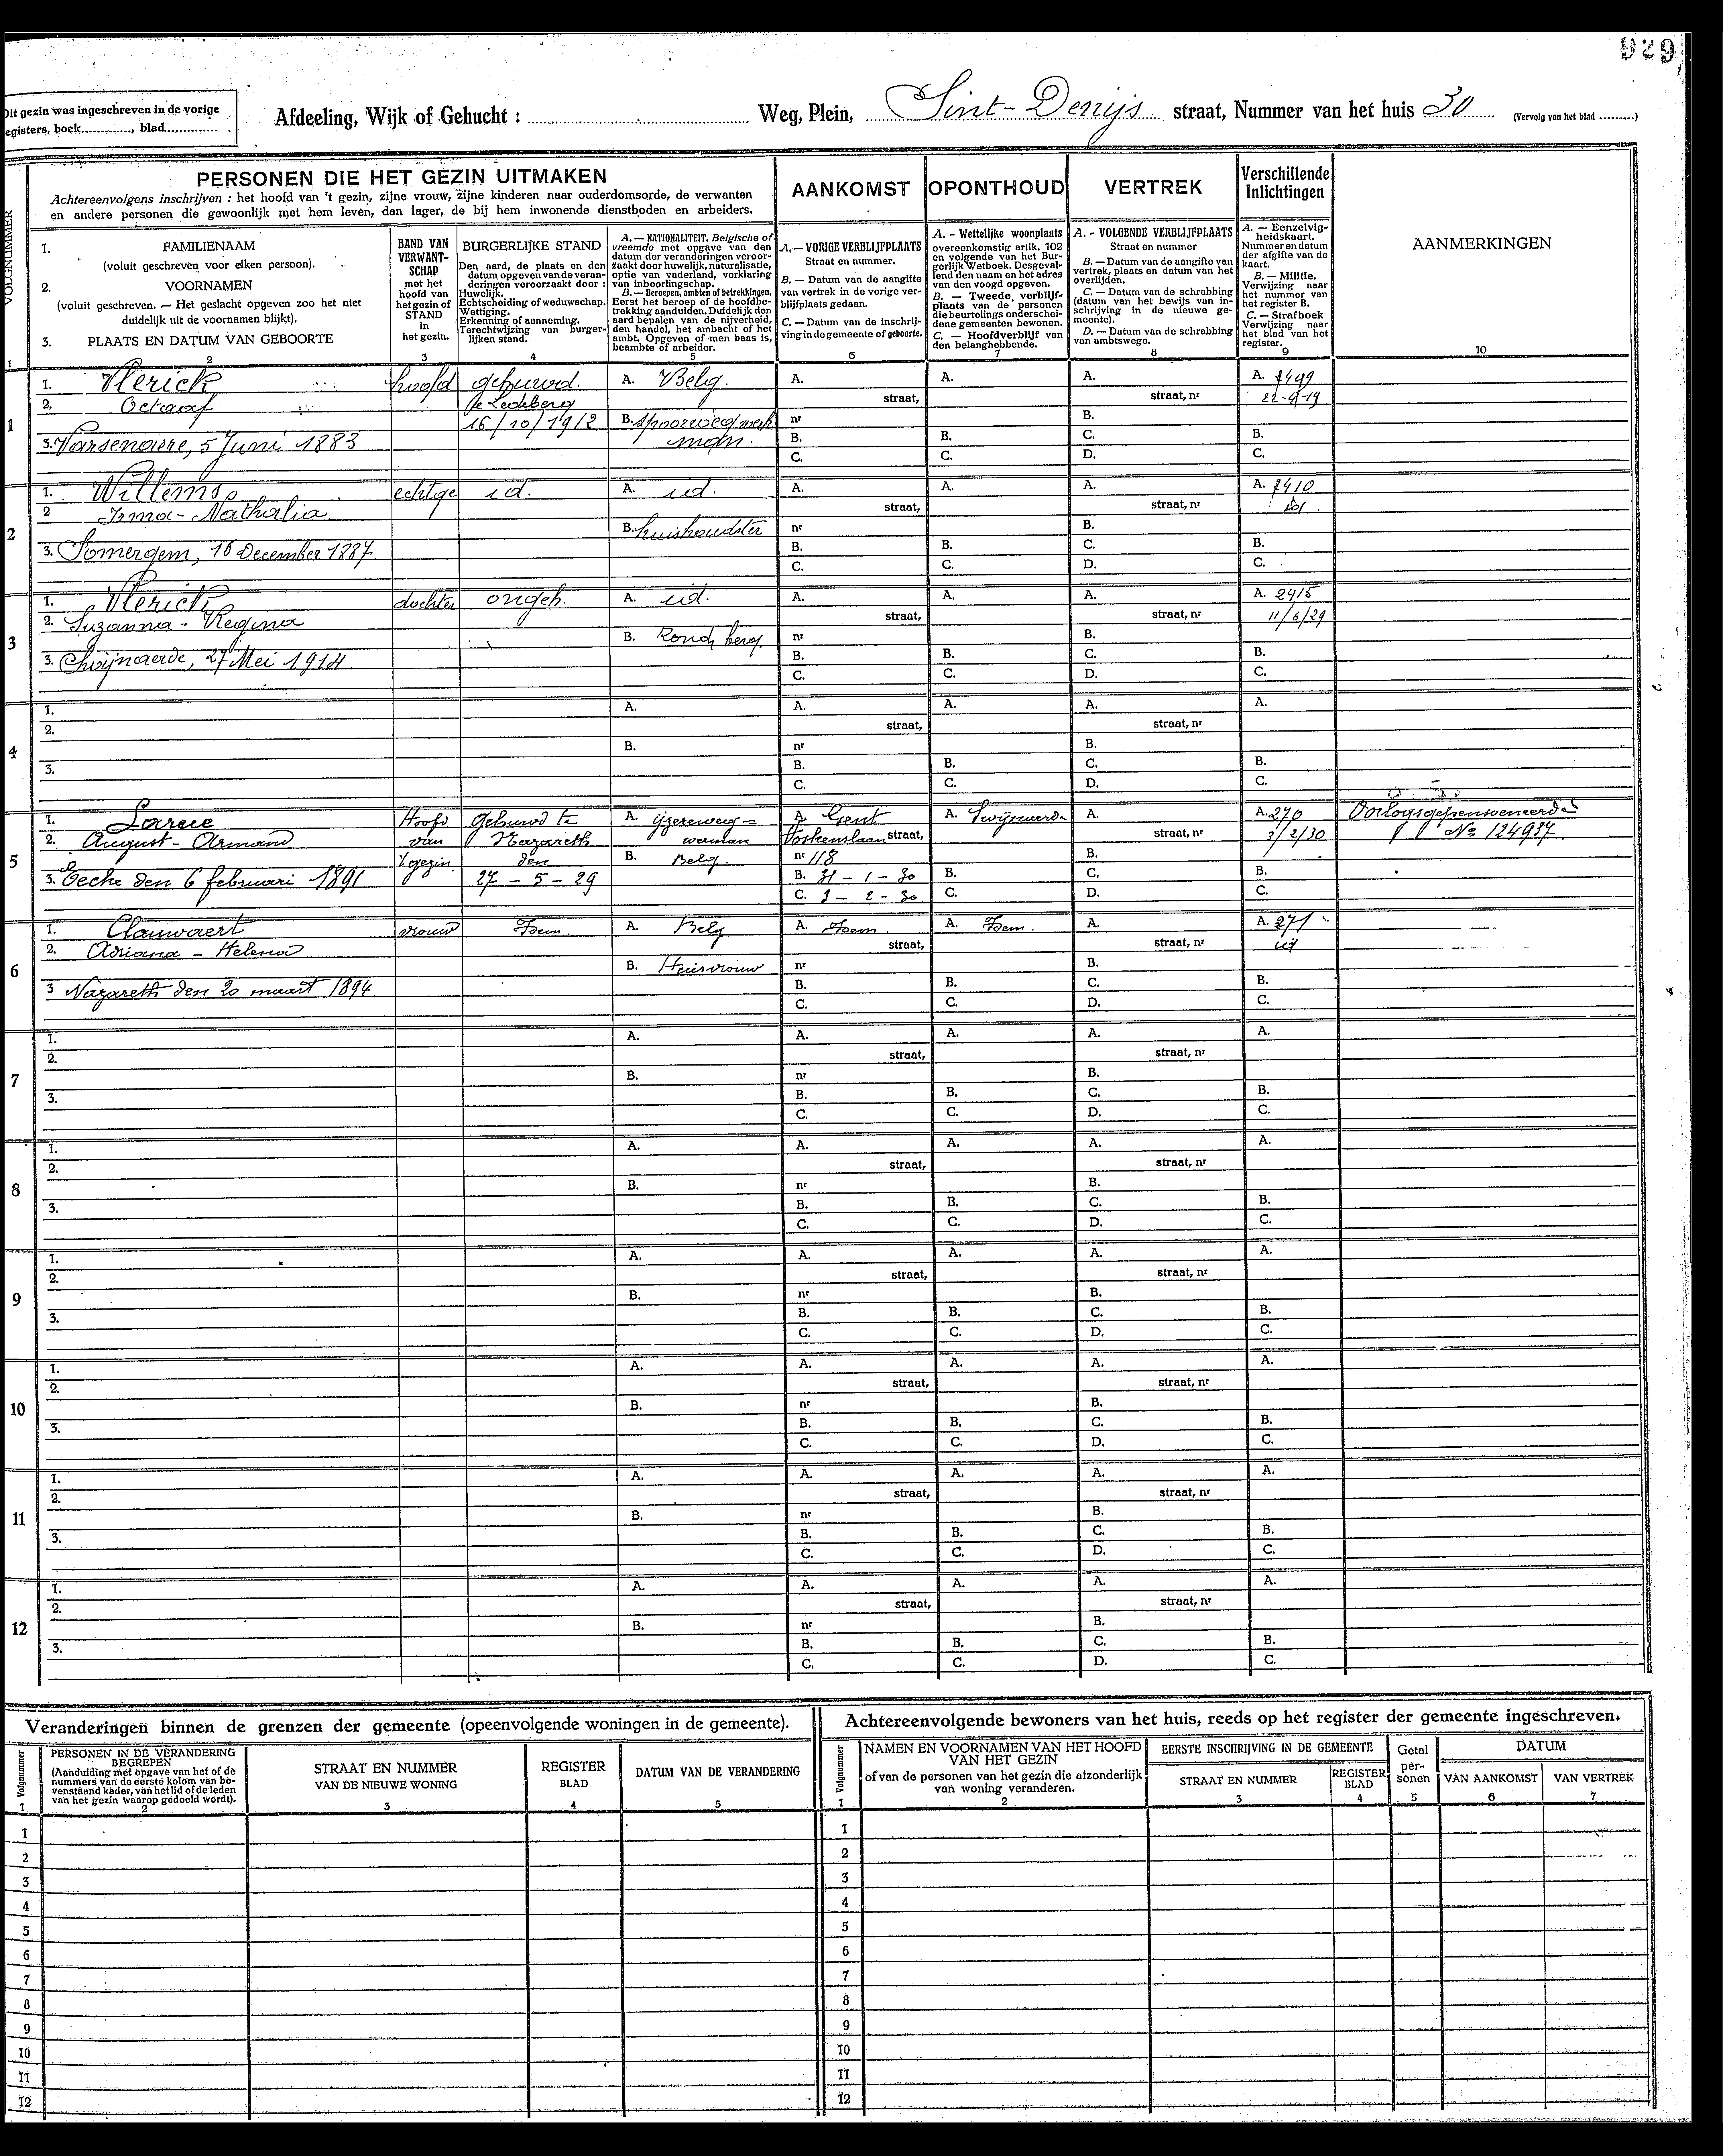 929
Dit gezin was ingeschreven in de vorige
registers, boek............, blad..............
Afdeeling, Wijk of Gehucht : ............ Weg, Plein, Sint-Denijs straat, Nummer van het huis 30 (Vervolg van het blad ..........)
PERSONEN DIE HET GEZIN UITMAKEN
Achtereenvolgens inschrijven : het hoofd van 't gezin, zijne vrouw, zijne kinderen naar ouderdomsorde, de verwanten
en andere personen die gewoonlijk met hem leven, dan lager, de bij hem inwonende dienstboden en arbeiders.
VOLGNUMMER
1
1. FAMILIENAAM
(voluit geschreven voor elken persoon).
2. VOORNAMEN
(voluit geschreven. — Het geslacht opgeven zoo het niet
duidelijk uit de voornamen blijkt).
3. PLAATS EN DATUM VAN GEBOORTE
2
BAND VAN
VERWANT-
SCHAP
met het
hoofd van
het gezin of
STAND
in
het gezin.
3
BURGERLIJKE STAND
Den aard, de plaats en den
datum opgeven van de veran-
deringen veroorzaakt door :
Huwelijk.
Echtscheiding of weduwschap.
Wettiging.
Erkenning of aanneming.
Terechtwijzing van burger-
lijken stand.
4
A. — NATIONALITEIT. Belgische of
vreemde met opgave van den
datum der veranderingen veroor-
zaakt door huwelijk, naturalisatie,
optie van vaderland, verklaring
van inboorlingschap.
B. — Beroepen, ambten of betrekkingen.
Eerst het beroep of de hoofdbe-
trekking aanduiden. Duidelijk den
aard bepalen van de nijverheid,
den handel, het ambacht of het
ambt. Opgeven of men baas is,
beambte of arbeider.
5
AANKOMST
A. — VORIGE VERBLIJFPLAATS
Straat en nummer.
B. — Datum van de aangifte
van vertrek in de vorige ver-
blijfplaats gedaan.
C. — Datum van de inschrij-
ving in de gemeente of geboorte.
6
OPONTHOUD
A. - Wettelijke woonplaats
overeenkomstig artik. 102
en volgende van het Bur-
gerlijk Wetboek. Desgeval-
lend den naam en het adres
van den voogd opgeven.
B. — Tweede verblijf-
plaats van de personen
die beurtelings onderschei-
dene gemeenten bewonen.
C. — Hoofdverblijf van
den belanghebbende.
7
VERTREK
A. - VOLGENDE VERBLIJFPLAATS
Straat en nummer
B. — Datum van de aangifte van
vertrek, plaats en datum van het
overlijden.
C. — Datum van de schrabbing
(datum van het bewijs van in-
schrijving in de nieuwe ge-
meente).
D. — Datum van de schrabbing
van ambtswege.
8
Verschillende
Inlichtingen
A. — Eenzelvig-
heidskaart.
Nummer en datum
der afgifte van de
kaart.
B. — Militie.
Verwijzing naar
het nummer van
het register B.
C. — Strafboek
Verwijzing naar
het blad van het
register.
9
AANMERKINGEN
10
1
1. Vlerick hoofd gehuwd. A. Belg. A. A. A. A. 2409
2. Octaaf te Ledeberg straat, straat, nr 22-4-19
16/10/1912 B. spoorwegwerk nr B.
3. Varsenaere, 5 Juni 1883 man. B. B. C. B.
C. C. D. C.
2
1. Willems echtge id. A. id. A. A. A. A. 2410
2 Irma - Nathalia straat, straat, nr id
B. huishoudster nr B.
3. Somergem, 16 December 1887. B. B. C. B.
C. C. D. C.
3
1. Vlerick dochter ongeh. A. id. A. A. A. A. 2415
2. Suzanna - Regina straat, straat, nr 11/6/29
B. nr B.
3. Swijnaerde, 27 Mei 1914 B. B. C. B.
C. C. D. C.
4
1. A. A. A. A. A.
2. straat, straat, nr
B. nr B.
3. B. B. C. B.
C. C. D. C.
5
1. Hoofd Gehuwd te A. ijzereweg= A. Gent A. Swijnaerde A. A. 270 Oorlogsgepensioneerde
2. August - Armand van Nazareth werkman Voskenslaan straat, straat, nr 3/2/30 No 124937
't gezin den B. Belg. nr 118 B.
3. Eecke den 6 februari 1891 27 - 5 - 29 B. 31 - 1 - 30 B. C. B.
C. 3 - 2 - 30 C. D. C.
6
1. Clauwaert vrouw Idem. A. Belg A. Idem. A. Idem. A. A. 271
2. Adriana - Helena straat, straat, nr id
B. Huisvrouw nr B.
3 Nazareth den 20 maart 1894 B. B. C. B.
C. C. D. C.
7
1. A. A. A. A. A.
2. straat, straat, nr
B. nr B.
3. B. B. C. B.
C. C. D. C.
8
1. A. A. A. A. A.
2. straat, straat, nr
B. nr B.
3. B. B. C. B.
C. C. D. C.
9
1. A. A. A. A. A.
2. straat, straat, nr
B. nr B.
3. B. B. C. B.
C. C. D. C.
10
1. A. A. A. A. A.
2. straat, straat, nr
B. nr B.
3. B. B. C. B.
C. C. D. C.
11
1. A. A. A. A. A.
2. straat, straat, nr
B. nr B.
3. B. B. C. B.
C. C. D. C.
12
1. A. A. A. A. A.
2. straat, straat, nr
B. nr B.
3. B. B. C. B.
C. C. D. C.
Veranderingen binnen de grenzen der gemeente (opeenvolgende woningen in de gemeente).
Volgnummer
1
PERSONEN IN DE VERANDERING
BEGREPEN
(Aanduiding met opgave van het of de
nummers van de eerste kolom van bo-
venstaand kader, van het lid of de leden
van het gezin waarop gedoeld wordt).
2
STRAAT EN NUMMER
VAN DE NIEUWE WONING
3
REGISTER
BLAD
4
DATUM VAN DE VERANDERING
5
1
2
3
4
5
6
7
8
9
10
11
12
Achtereenvolgende bewoners van het huis, reeds op het register der gemeente ingeschreven.
Volgnummer
1
NAMEN EN VOORNAMEN VAN HET HOOFD
VAN HET GEZIN
of van de personen van het gezin die afzonderlijk
van woning veranderen.
2
EERSTE INSCHRIJVING IN DE GEMEENTE
STRAAT EN NUMMER
3
REGISTER
BLAD
4
Getal
per-
sonen
5
DATUM
VAN AANKOMST
6
VAN VERTREK
7
1
2
3
4
5
6
7
8
9
10
11
12